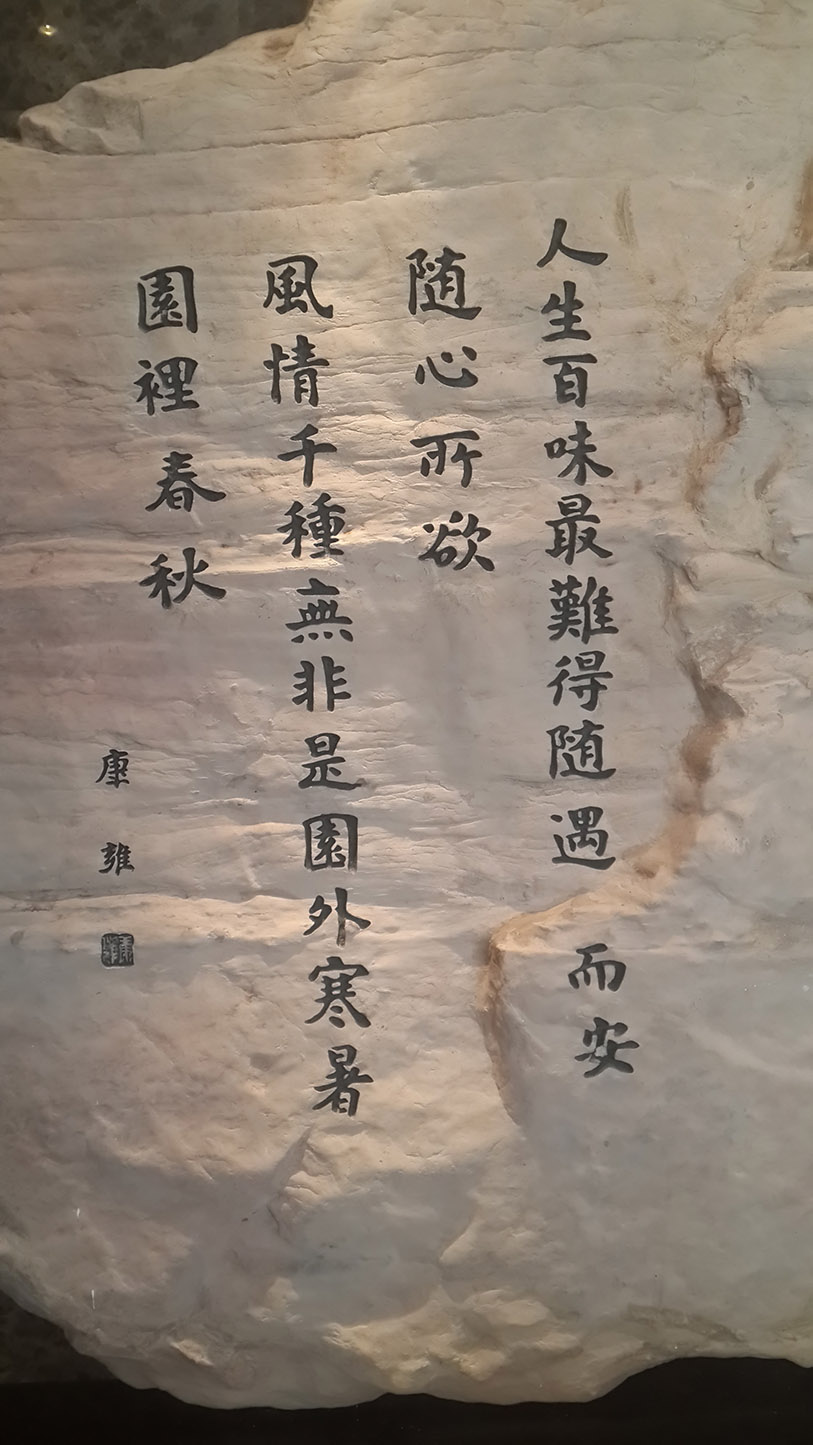 人生百味最難得随遇而安
随心所欲
風情千種無非是園外寒暑
園裡春秋
康雍